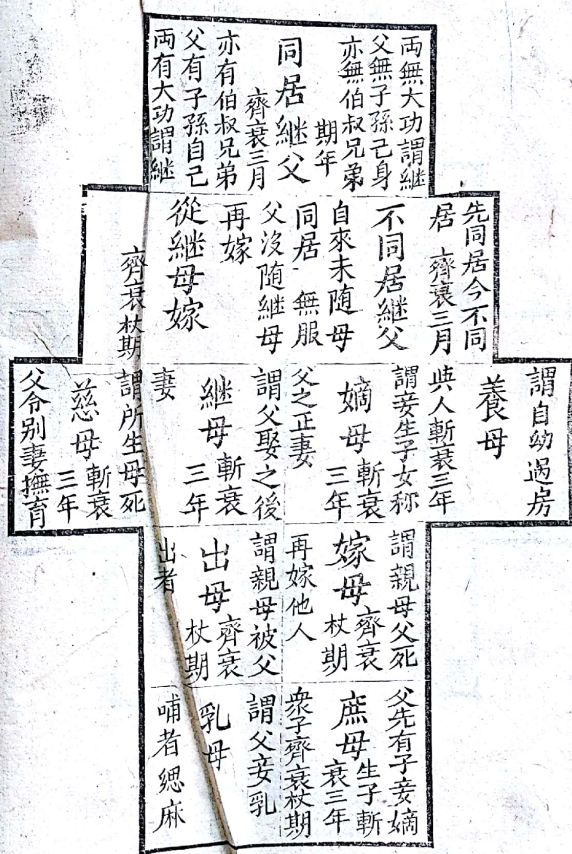 両無大功謂継
父無子孫己身
亦無伯叔兄弟
期年
同居継父
齊衰三月
亦有伯叔兄弟
父有子孫自己
両有大功謂継
先同居今不同
居 齊衰三月
不同居継父
自來未随母
同居 無服
父没随継母
再嫁
從継母嫁
齊衰杖期
謂自幼過房
養母
與人斬衰三年
謂妾生子女称
嫡母 斬衰三年
父之正妻
謂父娶之後
継母 斬衰三年
妻
謂所生母死
慈母 斬衰三年
父令别妻撫育
謂親母父死
嫁母 齊衰杖期
再嫁他人
謂親母被父
出母 齊衰杖期
出者
父先有子妾嫡
庶母 生子斬衰三年
衆子齊衰杖期
謂父妾乳
乳母
哺者緦麻